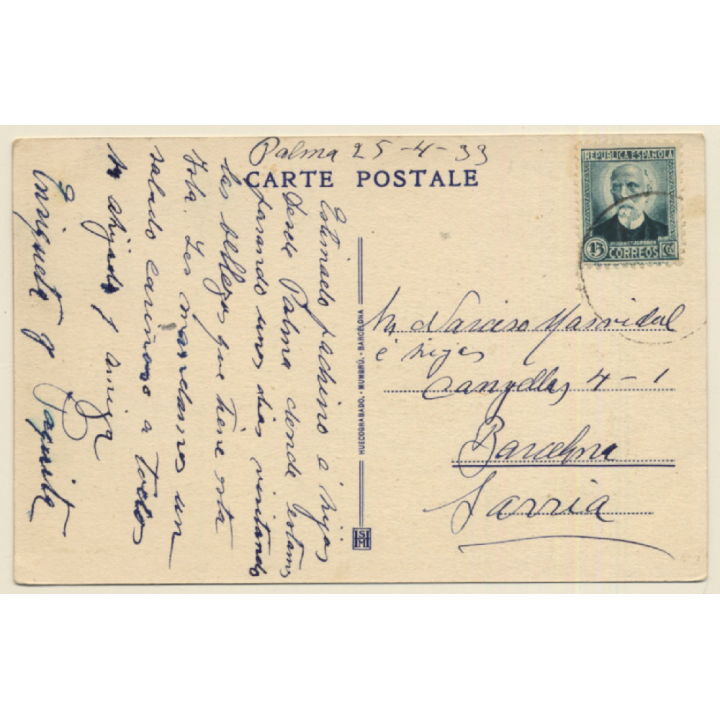 Palma 25-4-33
CARTE POSTALE
Estimado padrino é hijos
desde Palma donde estamos
pasando unos dias visitando
las bellezas que tiene esta
Isla. Les mandamos un
saludo cariñoso a todos
su ahijado y amiga
Enriqueta y Paquita
HUECOGRABADO.-MUMBRÚ.-BARCELONA
REPUBLICA ESPAÑOLA
15 CORREOS CTS
Sr Narciso Masvidal
é hijos
Canyellas 4-1
Barcelona
Sarria